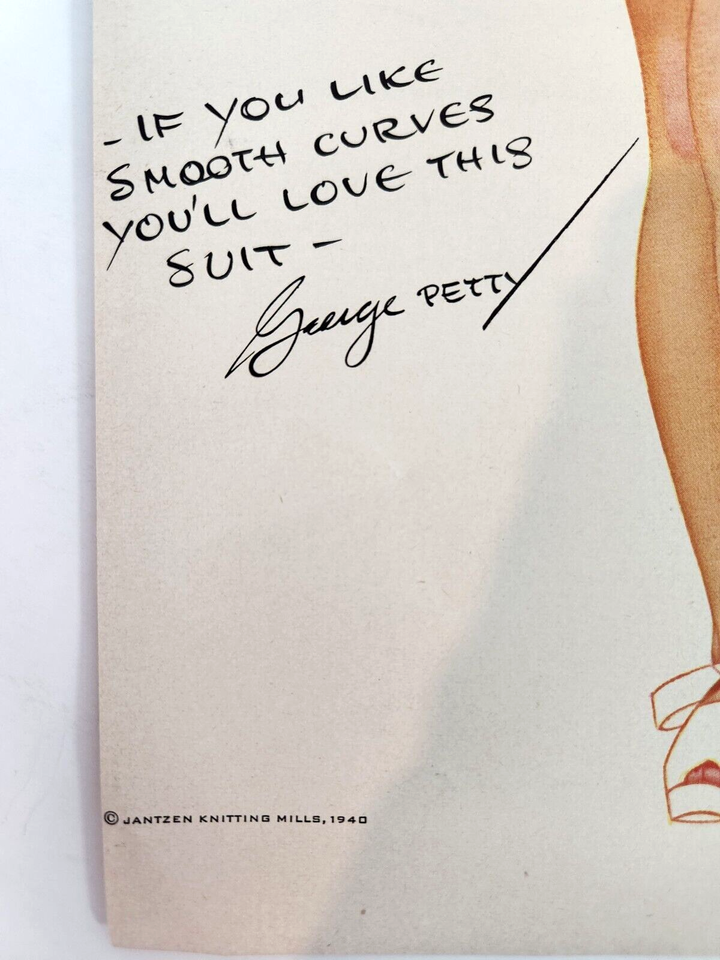 - IF YOU LIKE
SMOOTH CURVES
YOU'LL LOVE THIS
SUIT -
George PETTY
© JANTZEN KNITTING MILLS, 1940